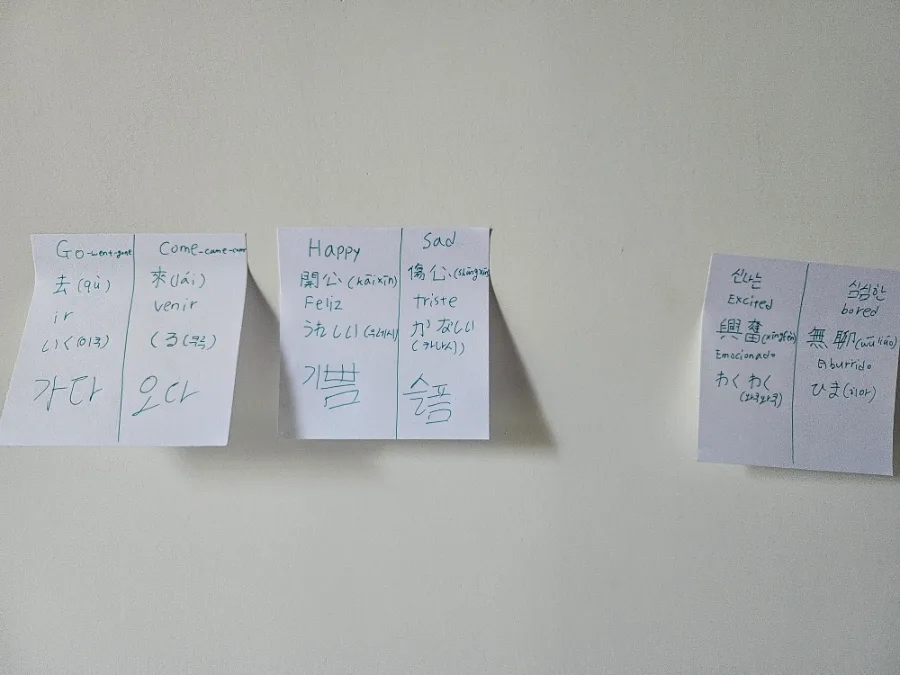 Go-went-gone
去(qù)
ir
いく(이쿠)
가다
Come-came-come
來(lái)
venir
くる(쿠루)
오다
Happy
開心(kāixīn)
Feliz
うれしい(우레시)
기쁨
Sad
傷心(shāngxīn)
triste
かなしい
(카나시)
슬픔
신나는
Excited
興奮(xīngfèn)
Emocionado
わくわく
(와쿠와쿠)
심심한
bored
無聊(wúliáo)
aburrido
ひま(히마)